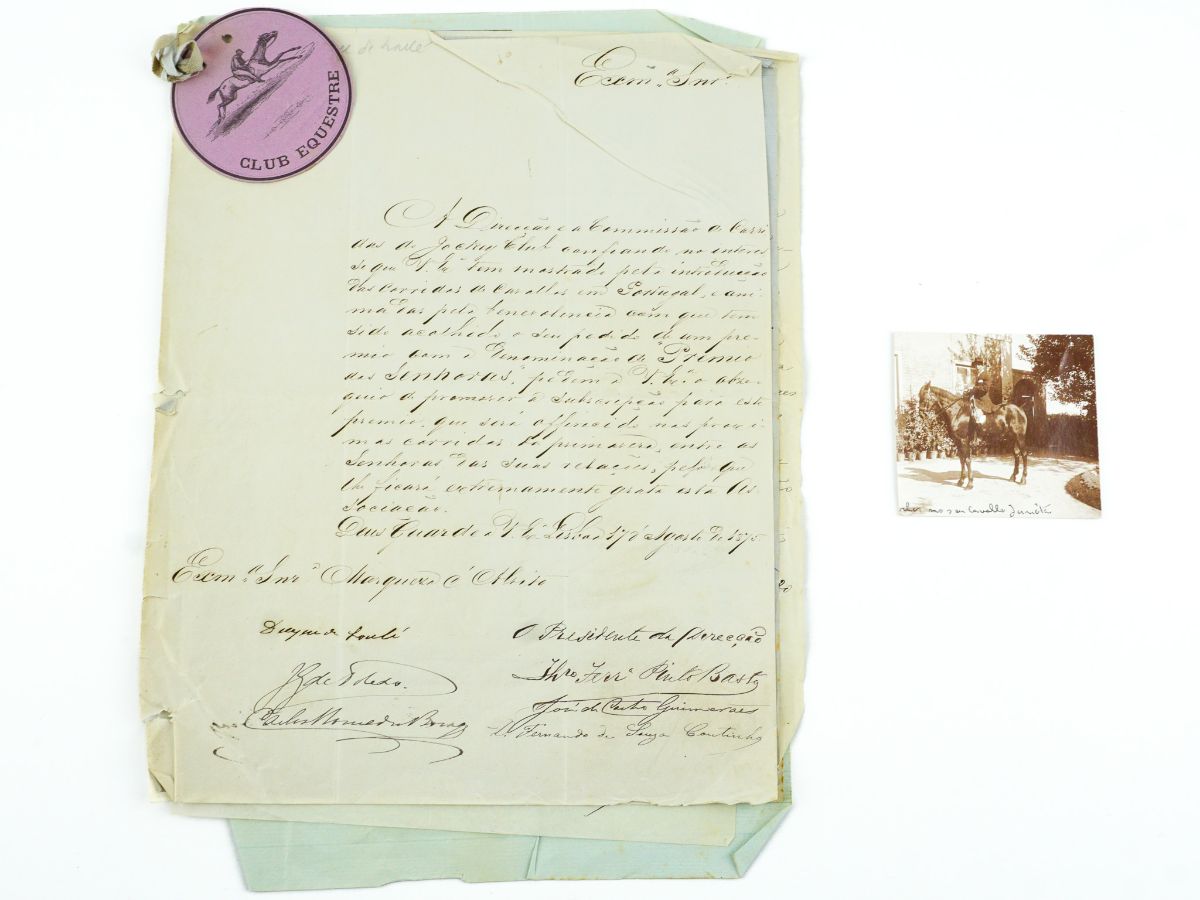 CLUB EQUESTRE
de Loulé
Exm.ª Snrª
A Direcção e a Commissão de Corri
das do Jockey Club confiando no interes
se que V. Exª tem mostrado pela introducção
das corridas de Cavallos em Portugal, e ani-
madas pela benevolencia com que tem
sido acolhido o seu pedido de um pre-
mio com a denominação de "Premio
das Senhoras", pedem a V. Exª o obse-
quio de promover a subscripção para este
premio, que será offerecido nas proxi-
mas corridas da primavera, entre as
Senhoras das suas relações, pelo que
lhe ficará extremamente grata esta As
sociação.
Deus Guarde a V. Exª Lisboa 17 d'Agosto de 1875
Exm.ª Snr.ª Marqueza d'Alvito
Duque de Loulé
O Presidente da Direcção
de Toledo.
Ferrª Pinto Basto
Carlos
José de Castro Guimarães
D. Fernando de Souza Coutinho
no seu cavallo